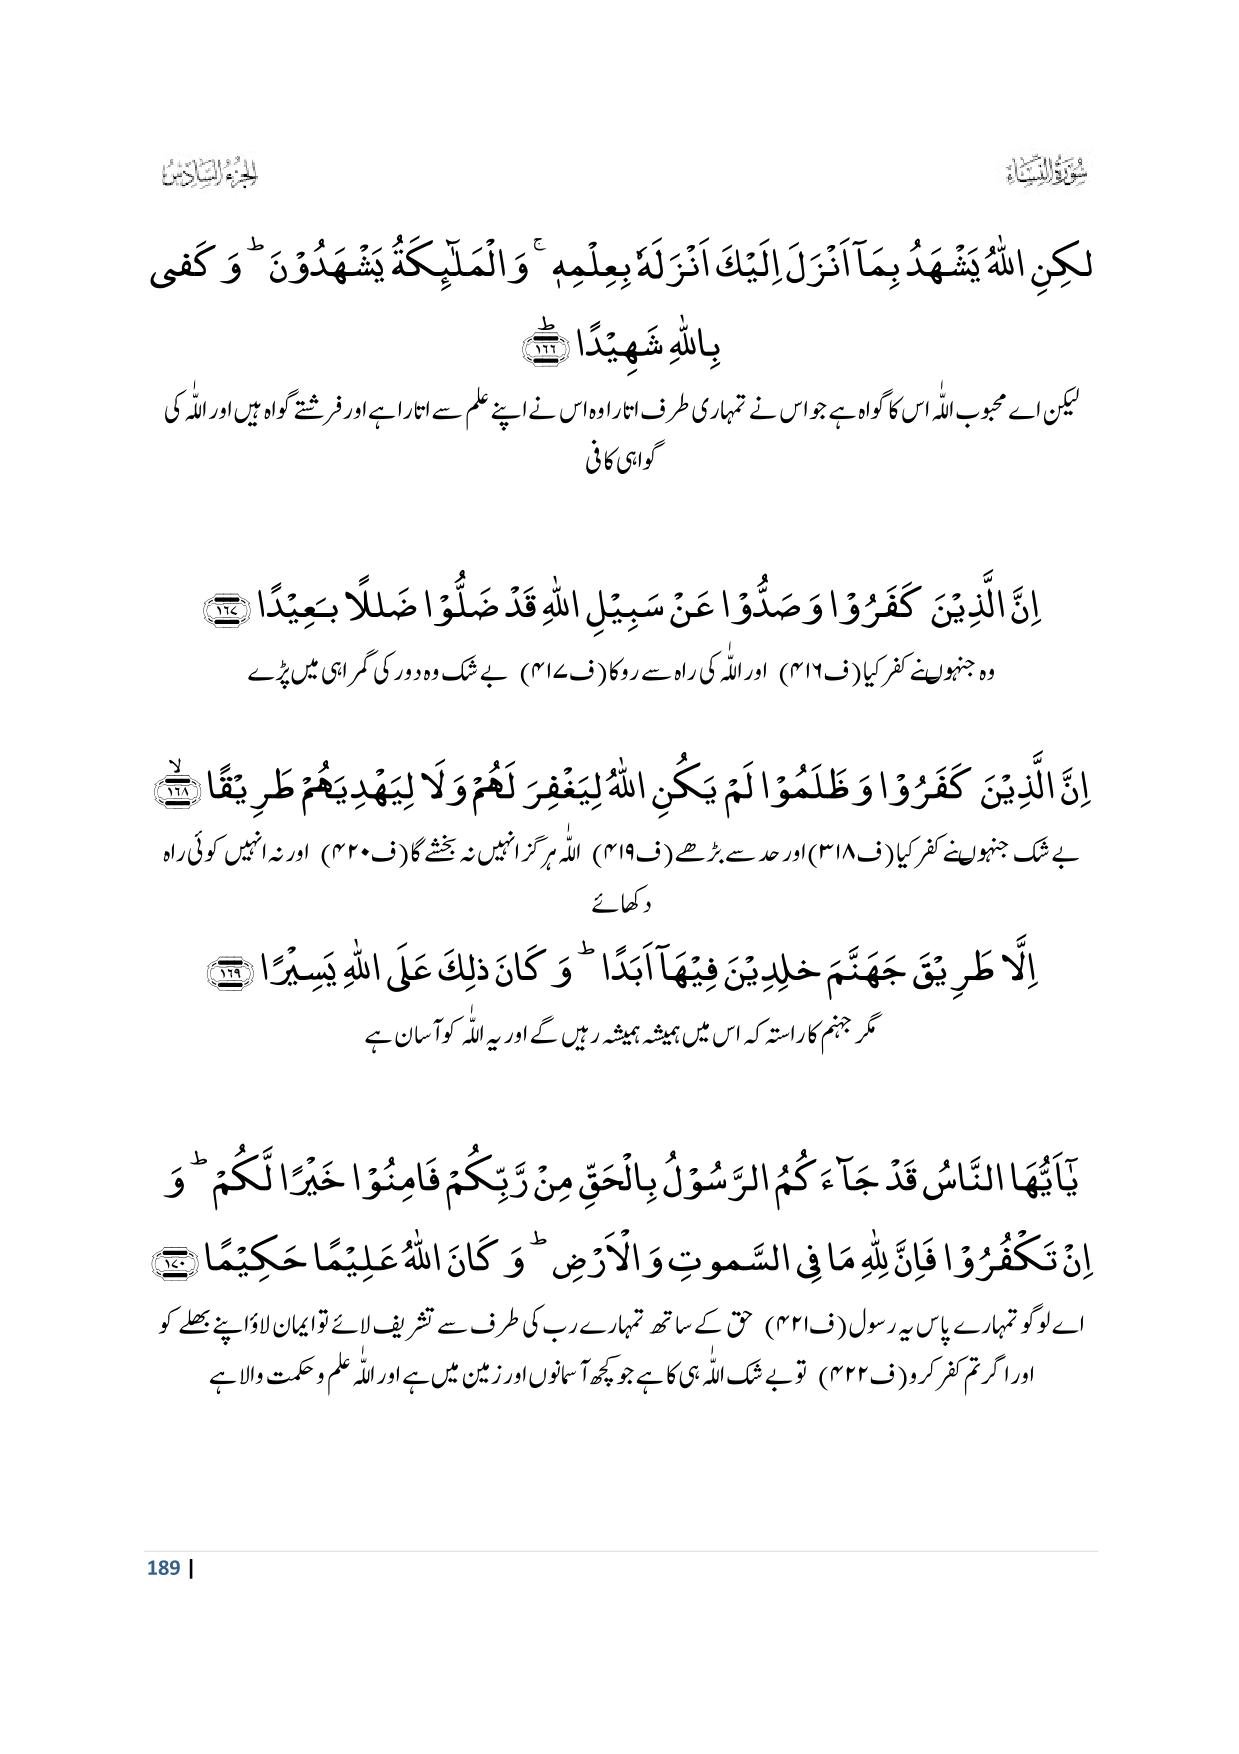 سُوْرَةُ النِّسَاء
الجزء السادس
لٰكِنِ اللّٰهُ يَشْهَدُ بِمَاۤ اَنْزَلَ اِلَيْكَ اَنْزَلَهٗ بِعِلْمِهٖ ۚ وَ الْمَلٰٓئِكَةُ يَشْهَدُوْنَ ؕ وَ كَفٰى
بِاللّٰهِ شَهِيْدًا ؕ﴿۱۶۶﴾
لیکن اے محبوب اللّٰہ اس کا گواہ ہے جو اس نے تمہاری طرف اتارا وہ اس نے اپنے علم سے اتارا ہے اور فرشتے گواہ ہیں اور اللّٰہ کی
گواہی کافی
اِنَّ الَّذِيْنَ كَفَرُوْا وَ صَدُّوْا عَنْ سَبِيْلِ اللّٰهِ قَدْ ضَلُّوْا ضَلٰلًا بَعِيْدًا ﴿۱۶۷﴾
وہ جنہوں نے کفر کیا (ف۴۱۶) اور اللّٰہ کی راہ سے روکا (ف۴۱۷) بے شک وہ دور کی گمراہی میں پڑے
اِنَّ الَّذِيْنَ كَفَرُوْا وَ ظَلَمُوْا لَمْ يَكُنِ اللّٰهُ لِيَغْفِرَ لَهُمْ وَ لَا لِيَهْدِيَهُمْ طَرِيْقًا ۙ﴿۱۶۸﴾
بے شک جنہوں نے کفر کیا (ف۳۱۸) اور حد سے بڑھے (ف۴۱۹) اللّٰہ ہرگز انہیں نہ بخشے گا (ف۴۲۰) اور نہ انہیں کوئی راہ
دکھائے
اِلَّا طَرِيْقَ جَهَنَّمَ خٰلِدِيْنَ فِيْهَاۤ اَبَدًا ؕ وَ كَانَ ذٰلِكَ عَلَى اللّٰهِ يَسِيْرًا ﴿۱۶۹﴾
مگر جہنم کا راستہ کہ اس میں ہمیشہ ہمیشہ رہیں گے اور یہ اللّٰہ کو آسان ہے
يٰۤاَيُّهَا النَّاسُ قَدْ جَآءَكُمُ الرَّسُوْلُ بِالْحَقِّ مِنْ رَّبِّكُمْ فَاٰمِنُوْا خَيْرًا لَّكُمْ ؕ وَ
اِنْ تَكْفُرُوْا فَاِنَّ لِلّٰهِ مَا فِى السَّمٰوٰتِ وَ الْاَرْضِ ؕ وَ كَانَ اللّٰهُ عَلِيْمًا حَكِيْمًا ﴿۱۷۰﴾
اے لوگو تمہارے پاس یہ رسول (ف۴۲۱) حق کے ساتھ تمہارے رب کی طرف سے تشریف لائے تو ایمان لاؤ اپنے بھلے کو
اور اگر تم کفر کرو (ف۴۲۲) تو بے شک اللّٰہ ہی کا ہے جو کچھ آسمانوں اور زمین میں ہے اور اللّٰہ علم و حکمت والا ہے
189 |